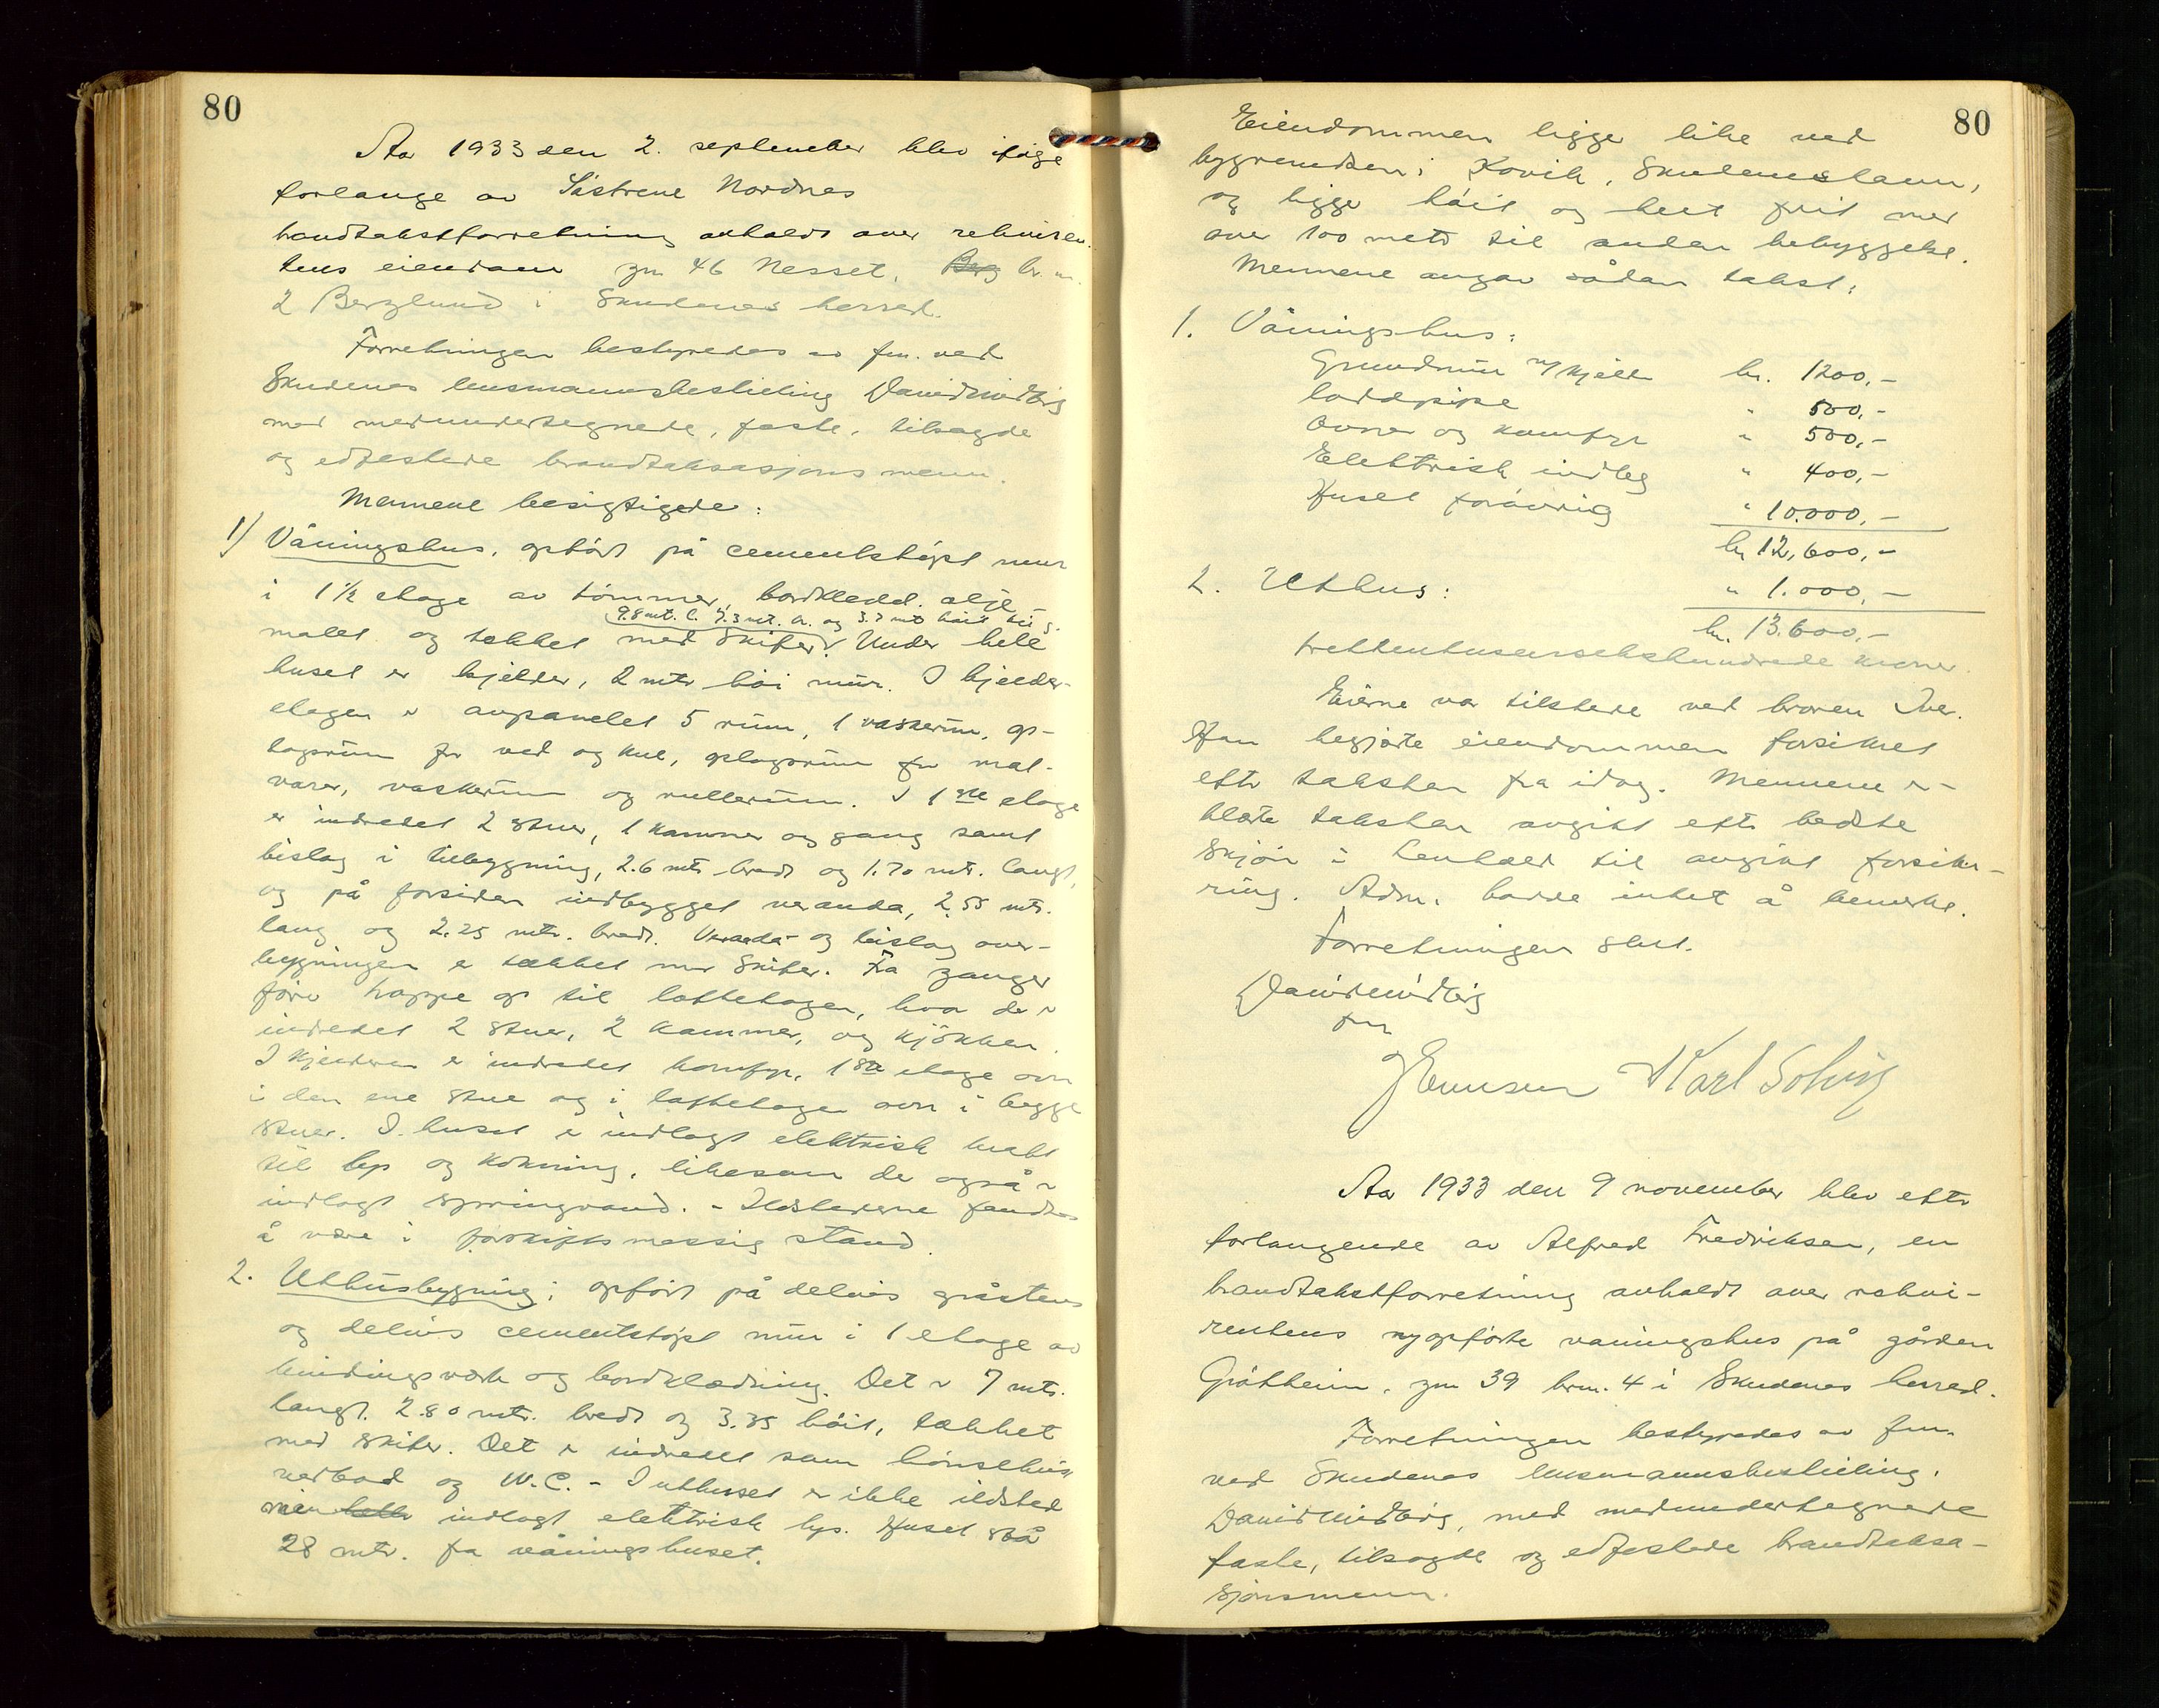 80
Aar 1933 den 2. september blev ifølge
forlange av Søstrene Nordnes
brandtakstforretning avholdt over rekviren-
tens eiendom gn 46 Nesset, Berg br. n.
2 Berglund i Skudenes herred.
Forretningen bestyredes av fm. ved
Skudenes lensmannsbestilling David Midtbig
med medundertegnede, faste, tilsagde
og edfestede brandtaksasjonsmenn.
Mennene besigtigede:
1) Våningshus, opført på cementstøpt mur
i 1½ etage av tømmer, bordkledd, olje-
9.8 mt. l. 7.3 mt. br. og 3.7 mt høit til g.
malet og tekket med skifer. Under hele
huset er kjelder, 2 mtr høi mur. I kjelder-
etagen er avpanelet 5 rum, 1 vaskerum, op-
lagsrum for ved og kul, oplagsrum for mat-
varer, vaskerum og rullerum. I 1ste etage
er indredet 2 stuer, 1 kammer og gang samt
bislag i tilbygning, 2.6 mtr bredt og 1.70 mtr. langt,
og på forsiden indbygget veranda, 2.55 mtr.
lang og 2.25 mtr. bred. Veranda- og bislag over-
bygningen er tækket med skifer. Fra ganger
fører trappe op til loftetagen, hvor der er
indredet 2 stuer, 2 kammer, og kjøkken.
I kjelderen er indredet komfyr, 1ste etage ovn
i den ene stue og i loftetagen ovn i begge
stuer. I huset er indlagt elektrisk kraft
til lys og kokning, likesom der også er
indlagt springvand. - Ildstederne fandtes
å være i forskriftsmessig stand.
2. Uthusbygning; opført på delvis gråstens
og delvis cementstøpt mur i 1 etage av
bindingsverk og bordklædning. Det er 7 mtr.
langt. 2.80 mtr. bredt og 3.35 høit, tækket
med skifer. Det er indredet som hønsehus,
vedbod og W.C. - I uthuset er ikke ildsted
eller indlagt elektrisk lys. Huset står
28 mtr. fra våningshuset.
80
Eiendommen ligger like ved
bygrendsen i Kovik, Skudeneshavn,
og ligger høit og helt frit med
over 100 metr til anden bebyggelse.
Mennene angav sådan takst:
1. Våningshus:
Grundmur m/kjelder kr. 1200,-
Loddpipe " 500,-
Ovner og komfyr " 500,-
Elektrisk indleg " 400,-
Huset forøvrig " 10.000,-
kr 12,600,-
2. Uthus: " 1.000,-
kr. 13.600,-
trettentusensekshundrede kroner.
Eierne var tilstede ved broren Iver.
Han begjærte eiendommen forsikret
efter taksten fra idag. Mennene er-
klærte taksten avgitt efter bedste
skjøn i henhold til avgivt forsik-
ring. Adm. hadde intet å bemerke.
Forretningen slut.
David Midtbig
fm
J Ennusen Karl Solvig
Aar 1933 den 9 november blev efter
forlangende av Alfred Fredriksen, en
brandtakstforretning avholdt over rekvi-
rentens nyopførte vaningshus på gården
Grøtheim, gn 39 brn. 4 i Skudenes herred.
Forretningen bestyredes av fm.
ved Skudenes lensmannsbestilling,
David Midtbig, med medundertegnede
faste, tilsagde og edfestede brandtaksa-
sjonsmenn.